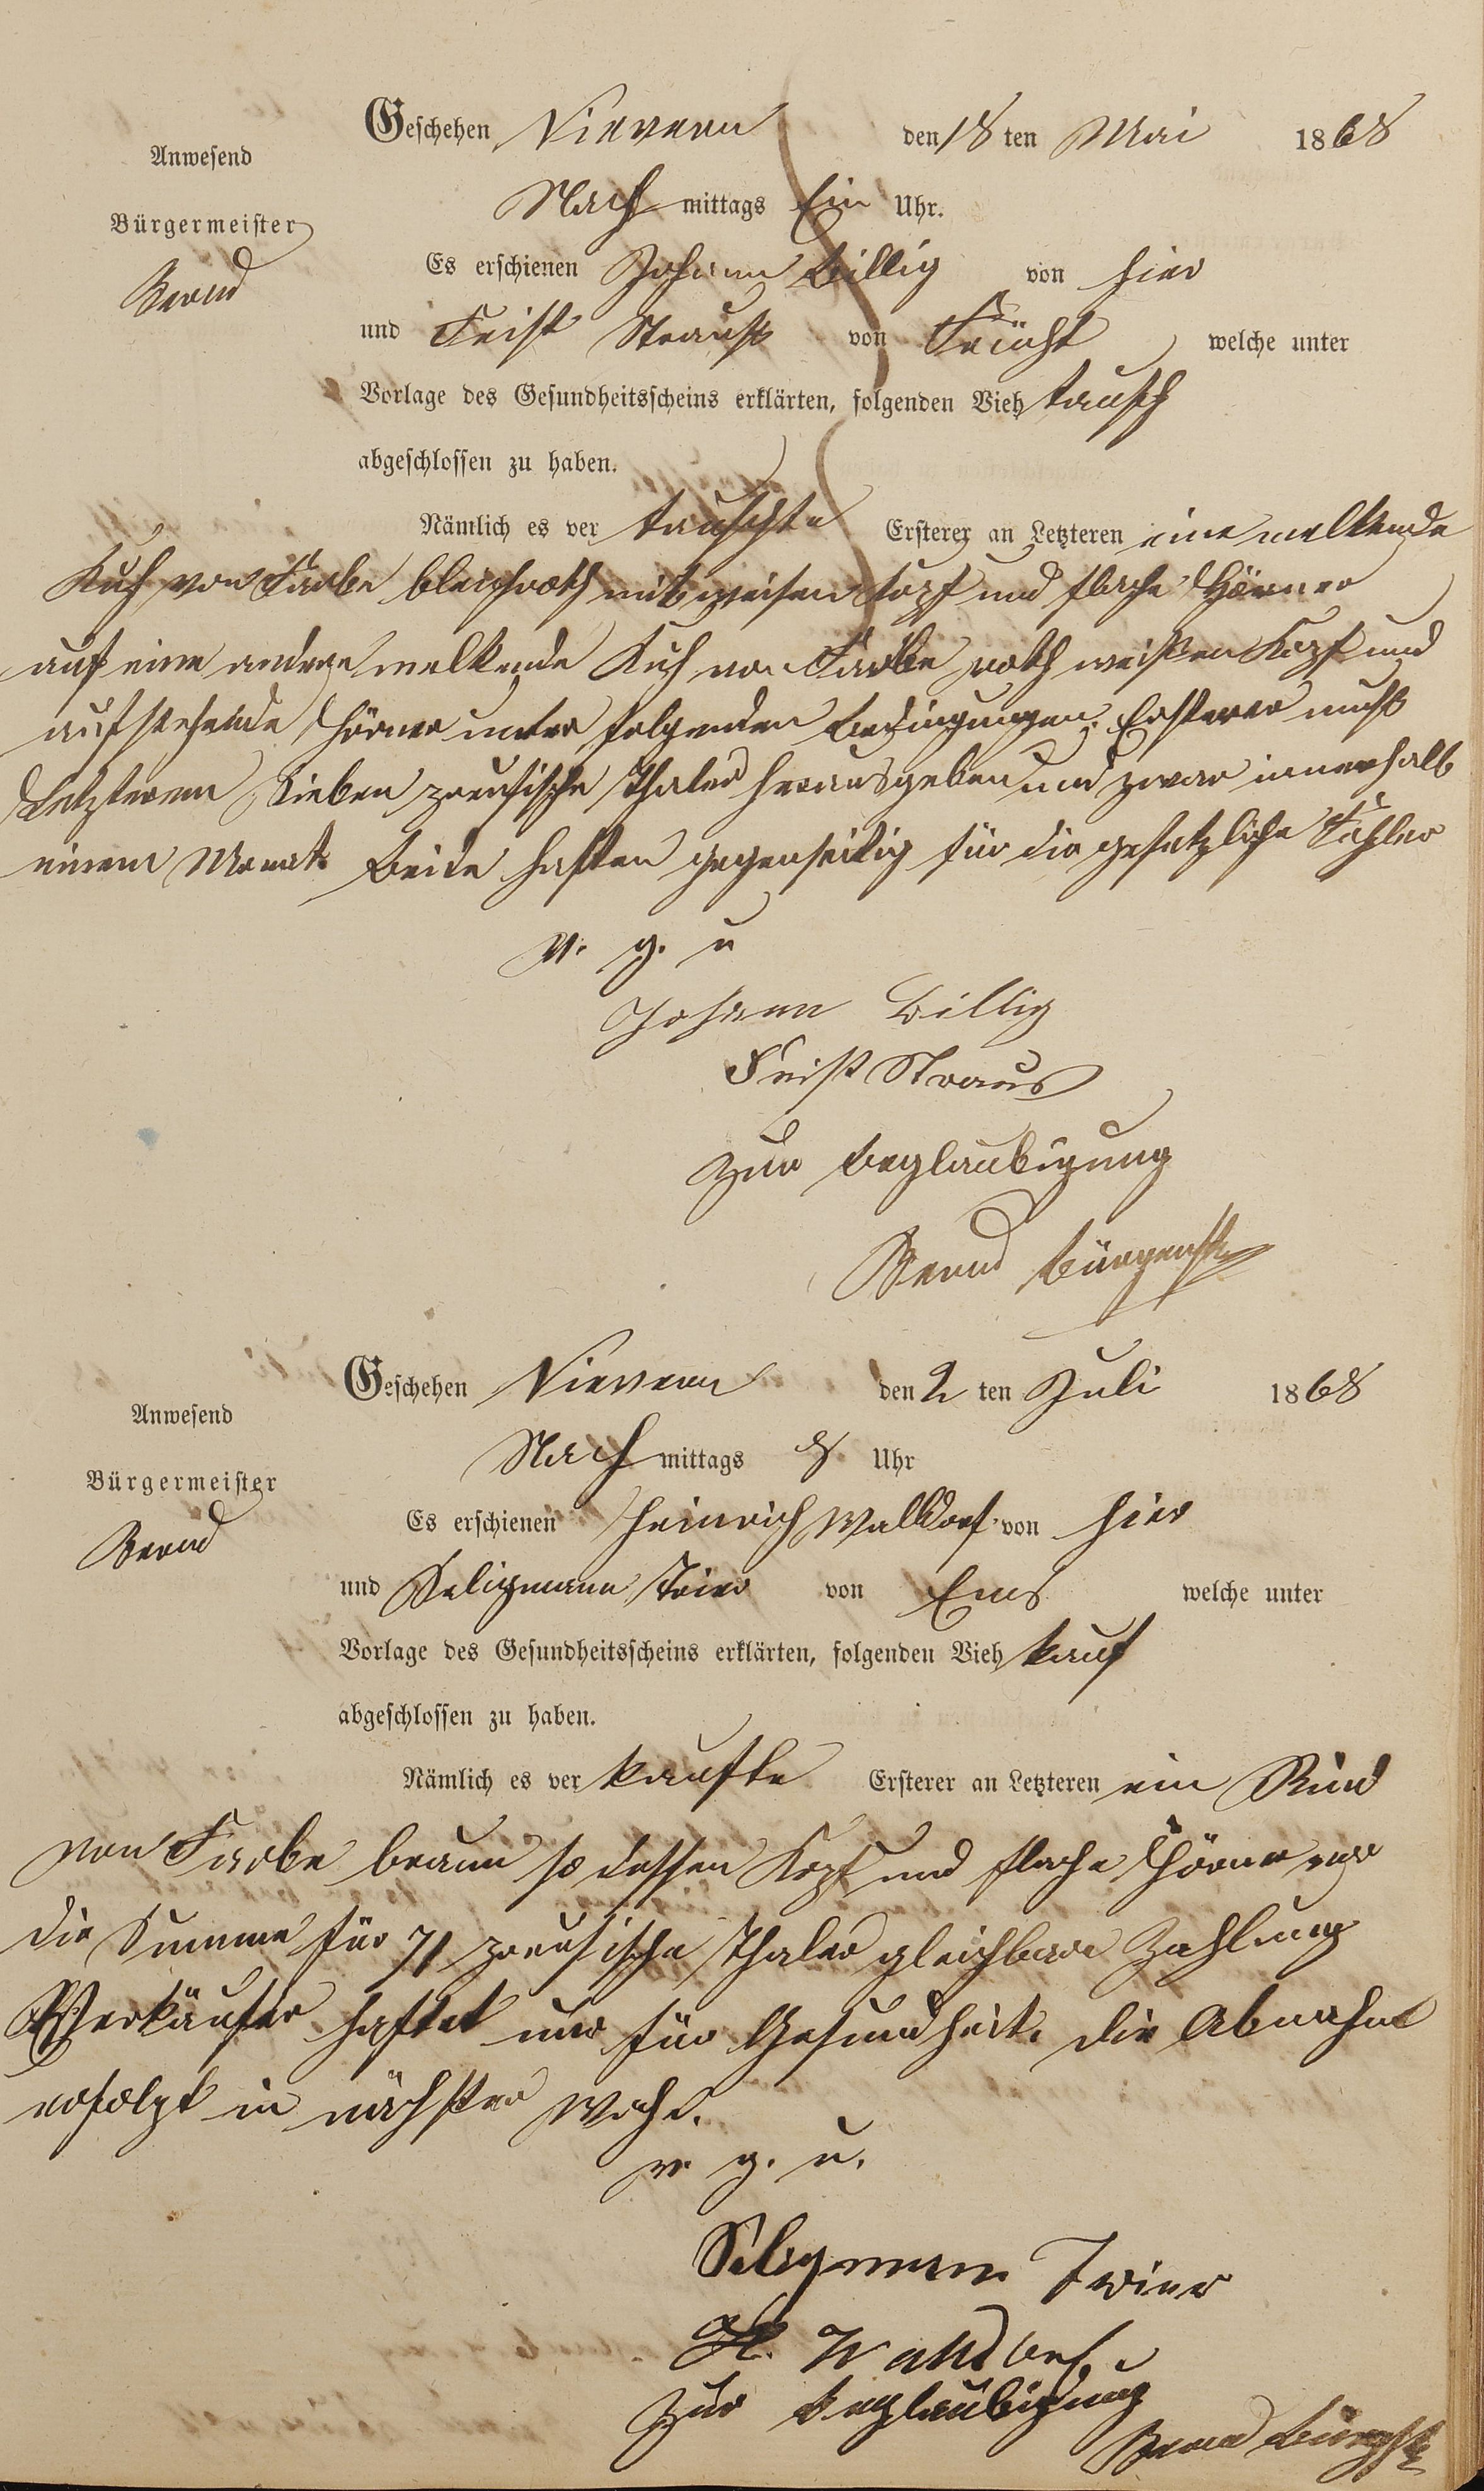 Geschehen Nievern den 18 ten Mai 1868
Anwesend
Nach mittags Ein Uhr.
Bürgermeister
Es erschienen Johann Billig von hier
Bernd
und Feist Strauß von Frücht welche unter
Vorlage des Gesundheitsscheins erklärten, folgenden Vieh tausch
abgeschlossen zu haben.
Nämlich es ver tauschte Ersterer an Letzteren eine melkende
Kuh von Farbe bleichroth mit weisen Kopf und flache Hörner
auf eine andere melkende Kuh von Farbe roth weißen Kopf und
aufstehende Hörner unter folgenden Bedingungen. Ersterer muß
Letzterem Sieben preusische Thaler herausgeben und zwar innerhalb
einem Monat Beide haften gegenseitig für die gesetzliche Fehler
v. g. u
Johann Billig
Feist Straus
Zur Beglaubigung
Bernd Bürgermstr
Geschehen Nievern den 2 ten Juli 1868
Anwesend
Nach mittags 8 Uhr
Bürgermeister
Es erschienen Heinrich Walldorf von hier
Bernd
und Seligmann Trier von Ems welche unter
Vorlage des Gesundheitsscheins erklärten, folgenden Vieh kauf
abgeschlossen zu haben.
Nämlich es ver kaufte Ersterer an Letzteren ein Rind
von Farbe braun so dessen Kopf und flache Hörner
die Summe für 71 preusische Thaler gleichbare Zahlung
Verkäufer haftet nur für Gesundheit. die Abnahme
erfolgt in nächster Woche.
v. g. u.
Seligmann Trier
H. Walldorf
Zur Beglaubigung
Bernd Bürgmstr